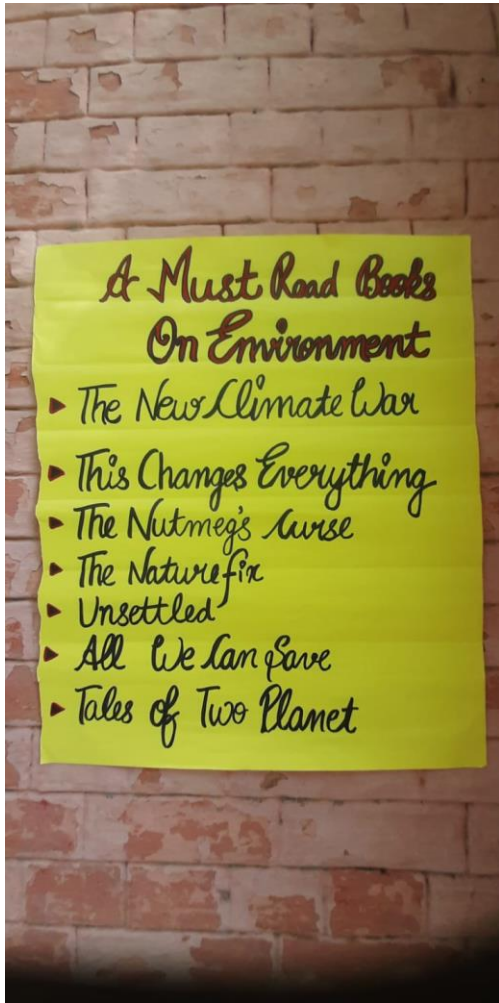 A Must Read Books
On Environment
The New Climate War
This Changes Everything
The Nutmeg's Curse
The Naturefix
Unsettled
All We Can Save
Tales of Two Planet